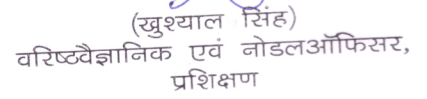 (खुश्याल सिंह)
वरिष्ठवैज्ञानिक एवं नोडलऑफिसर,
प्रशिक्षण